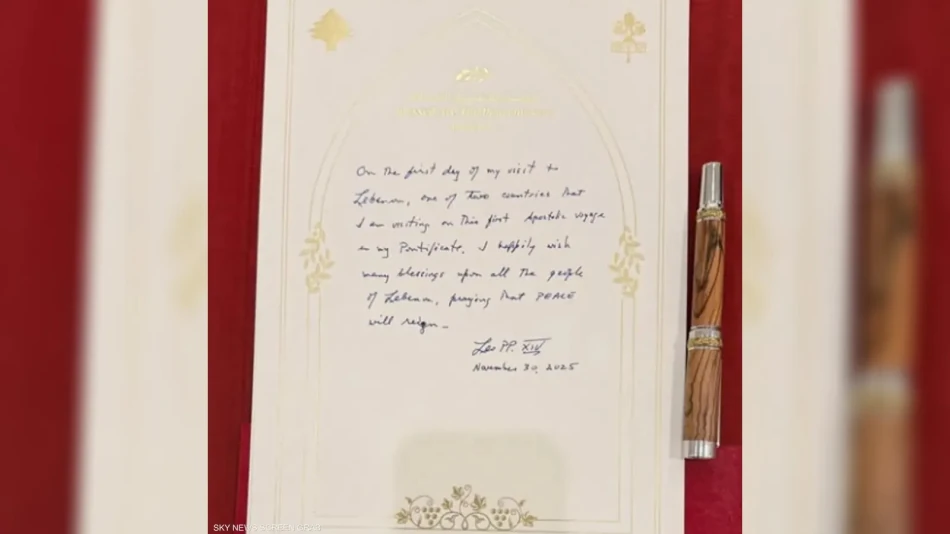 On the first day of my visit to
Lebanon, one of two countries that
I am visiting on this first Apostolic voyage
in my Pontificate, I happily wish
many blessings upon all the people
of Lebanon, praying that PEACE
will reign –
Leo PP. XIV
November 30, 2025
SKY NEWS